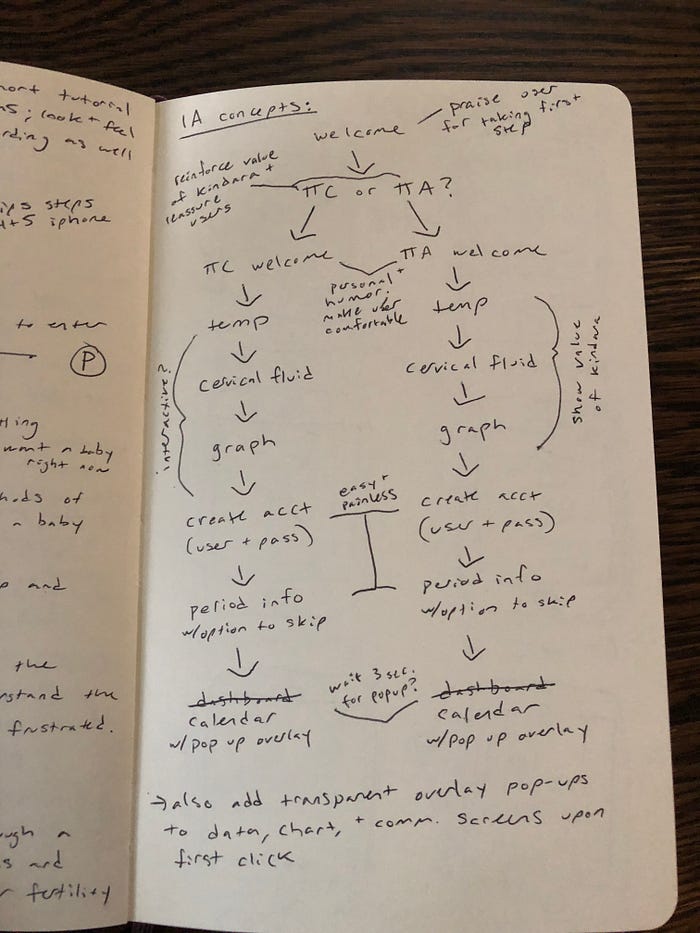 short tutorial
look + feel
as well
steps
iphone
to enter
P
want a baby
right now
a baby
and
the
the
frustrated.
a
and
fertility
IA concepts:
welcome
praise user
for taking first
step
reinforce value
of kindara +
reassure
users
TTC or TTA?
TTC welcome
TTA welcome
personal +
humor:
make user
comfortable
temp
temp
cervical fluid
cervical fluid
interactive?
show value
of kindara
graph
graph
easy +
painless
create acct
(user + pass)
create acct
(user + pass)
period info
w/option to skip
period info
w/option to skip
wait 3 sec.
for popup?
dashboard
calendar
w/pop up overlay
dashboard
calendar
w/pop up overlay
→also add transparent overlay pop-ups
to data, chart, + comm. screens upon
first click